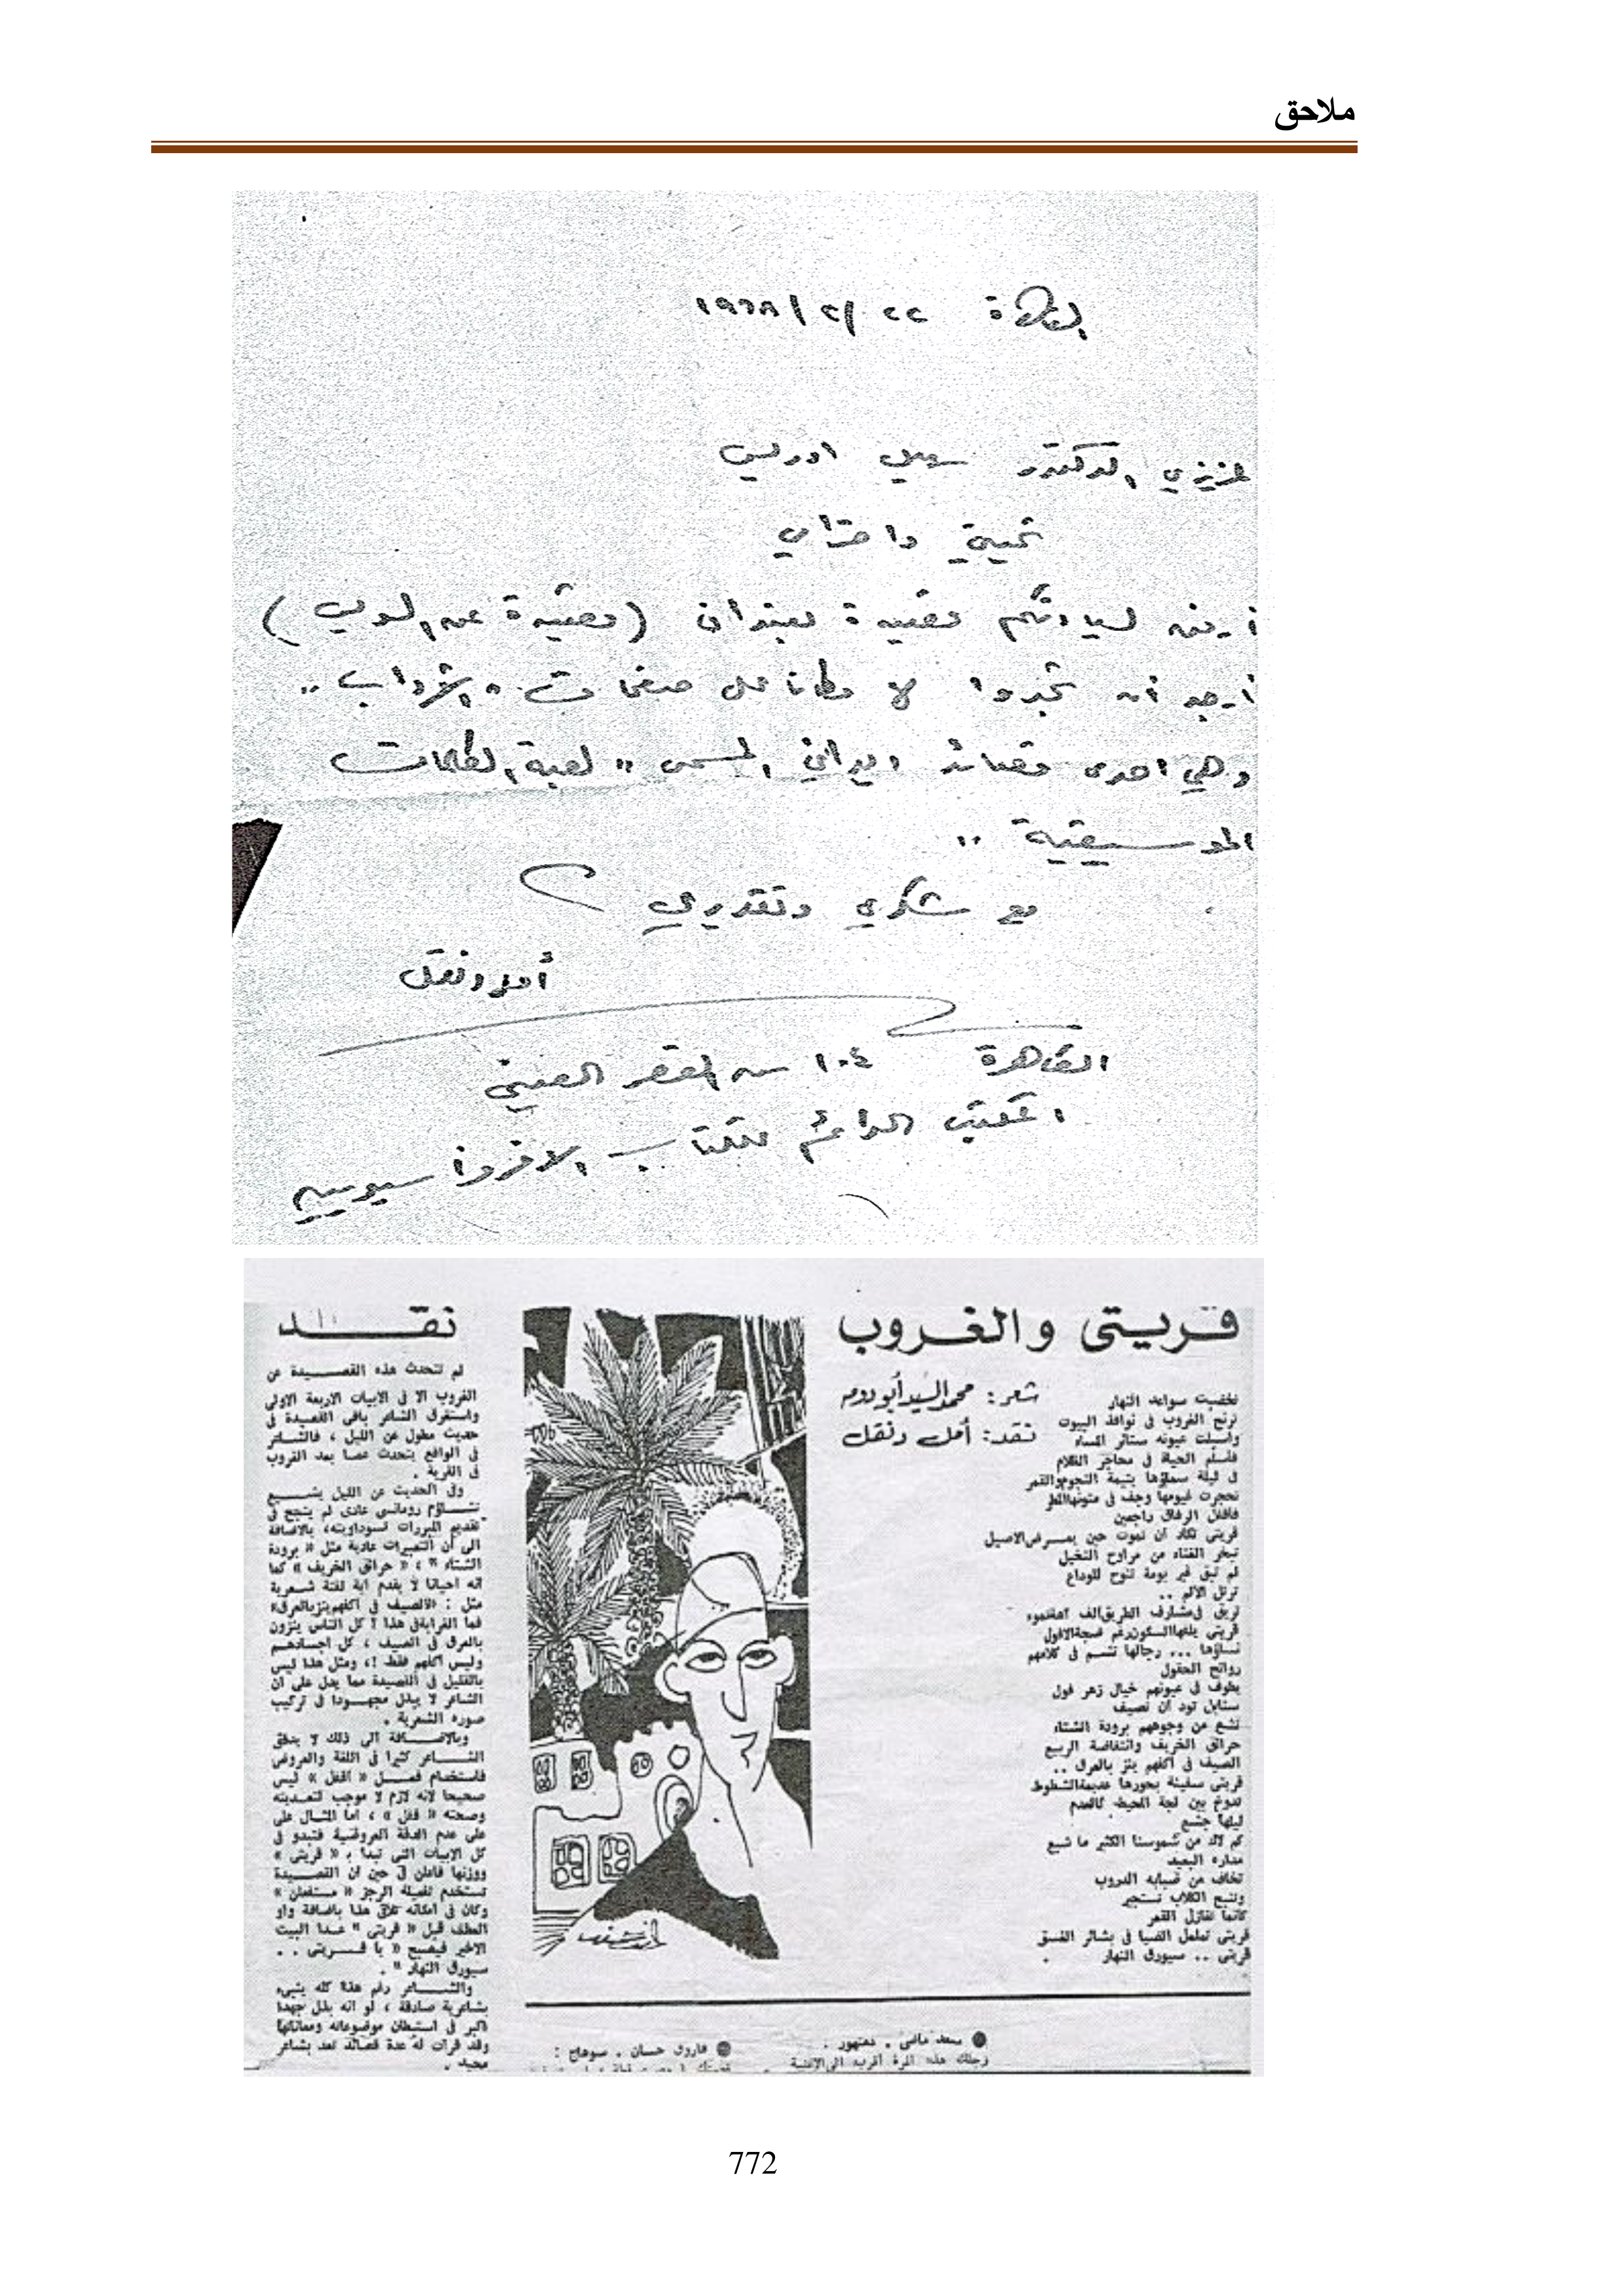 ملاحق
القاهرة ٢٢ /٢/ ١٩٦٨
عزيزي الدكتور سهيل ادريس
تحيتي واحترامي
أرفق لسيادتكم قصيدة بعنوان (قصيدة عن السويس)
أرجو أن تجدوا لها مكانا على صفحات " الآداب "
وهي احدى قصائد ديواني المسمى " لعبة الكلمات
الموسيقية "
مع شكري وتقديري
أمل دنقل
القاهرة ١٠٤ ش القصر العيني
المكتب الدائم للكتاب الافروأسيويين
قريتى والغروب
شعر: محمد السيد أبو دومه
نقد: أمل دنقل
تخضبت سواعد النهار
ترنح الغروب فى نوافذ البيوت
وأسبلت عيونه ستائر المساء
فأسلم الحياة فى محاجر الظلام
فى ليلة سماؤها يتيمة النجوم والقمر
تحجرت غيومها وجف فى متونها المطر
فأقفل الرفاق راجعين
قريتى تكاد أن تموت حين يمرض الاصيل
تبخر الغناء من مراوح النخيل
لم تبق غير بومة تنوح للوداع
ترتل الألم ..
تريق فى مشارف الطريق ألف
قريتى يلفها السكون رغم ضجة الافول
نساؤها ... رجالها تشم فى كلامهم
روائح الحقول
يطوف فى عيونهم خيال زهر فول
سنابل تود أن تصيف
تشع من وجوههم برودة الشتاء
حرائق الخريف وانتفاضة الربيع
الصيف فى أكفهم ينز بالعرق ..
قريتى سفينة بحورها عديمة الشطوط
تدوخ بين لجة المحيط كالعدم
ليلها جشع
كم لاك من شموسنا الكثير ما شبع
مداره البعيد
تخاف من ضبابه الدروب
وتنبح الكلاب تستجير
كأنما تغازل القمر
قريتى تململ الضيا فى بشائر الغسق
قريتى .. سيورق النهار .
نقـــد
لم تتحدث هذه القصــيدة عن
الغروب الا فى الابيات الاربعة الاولى
واستغرق الشاعر باقى القصيدة فى
حديث مطول عن الليل ، فالشـاعر
فى الواقع يتحدث عمـا بعد الغروب
فى القرية .
وفى الحديث عن الليل يشـــيع
تشــاؤم رومانسى عادى لم ينجح فى
تقديم المبررات لسوداويته، بالاضافة
الى أن التعبيرات عادية مثل « برودة
الشتاء » ، « حرائق الخريف » كما
أنه احيانا لا يقدم أية لفتة شـعرية
مثل : «الصيف فى أكفهم ينز بالعرق»
فما الغرابة فى هذا ؟ كل الناس ينزون
بالعرق فى الصيف ، كل أجسادهـم
وليس أكفهم فقط !، ومثل هذا ليس
بالقليل فى القصيدة مما يدل على أن
الشاعر لا يبذل مجهـودا فى تركيب
صوره الشعرية .
وبالاضـــافة الى ذلك لا يدقق
الشــاعر كثيرا فى اللغة والعروض
فاستخدام فعـــل « أقفل » ليس
صحيحا لانه لازم لا موجب لتعـديته
وصحته « قفل » ، أما المثـال على
على عدم الدقة العروضية فتبدو فى
كل الابيات التى تبدأ بـ « قريتى »
ووزنها فاعلن فى حين أن القصــيدة
تستخدم تفعيلة الرجز « مستفعلن »
وكان فى امكانه تلافى هذا باضافة واو
العطف قبل « قريتى » عـدا البيت
الاخير فيصبح « يا قـــريتى ..
سيورق النهار » .
والشـــاعر رغم هذا كله ينبىء
بشاعرية صادقة ، لو أنه بذل جهدا
أكبر فى استبطان موضوعاته ومعاناتها
وقد قرأت له عدة قصائد تعد بشاعر
مجيد .
● سعد ماضى . دمنهور :
زجلك هذه المرة أقرب الى الاغنية
● فاروق حسان . سوهاج :
772